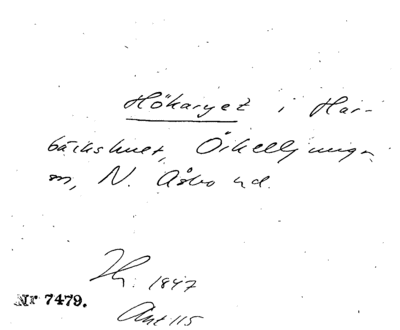 Hökaryet i Har-
bäckshult, Örkelljunga
sn, N. Åsbo hd.
Th. 1847
Nr 7479.
Ant 115